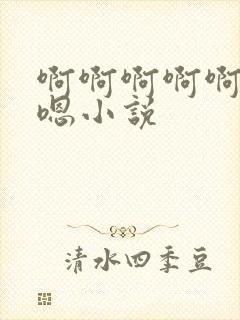 啊啊啊啊啊
嗯小说
清水四季豆